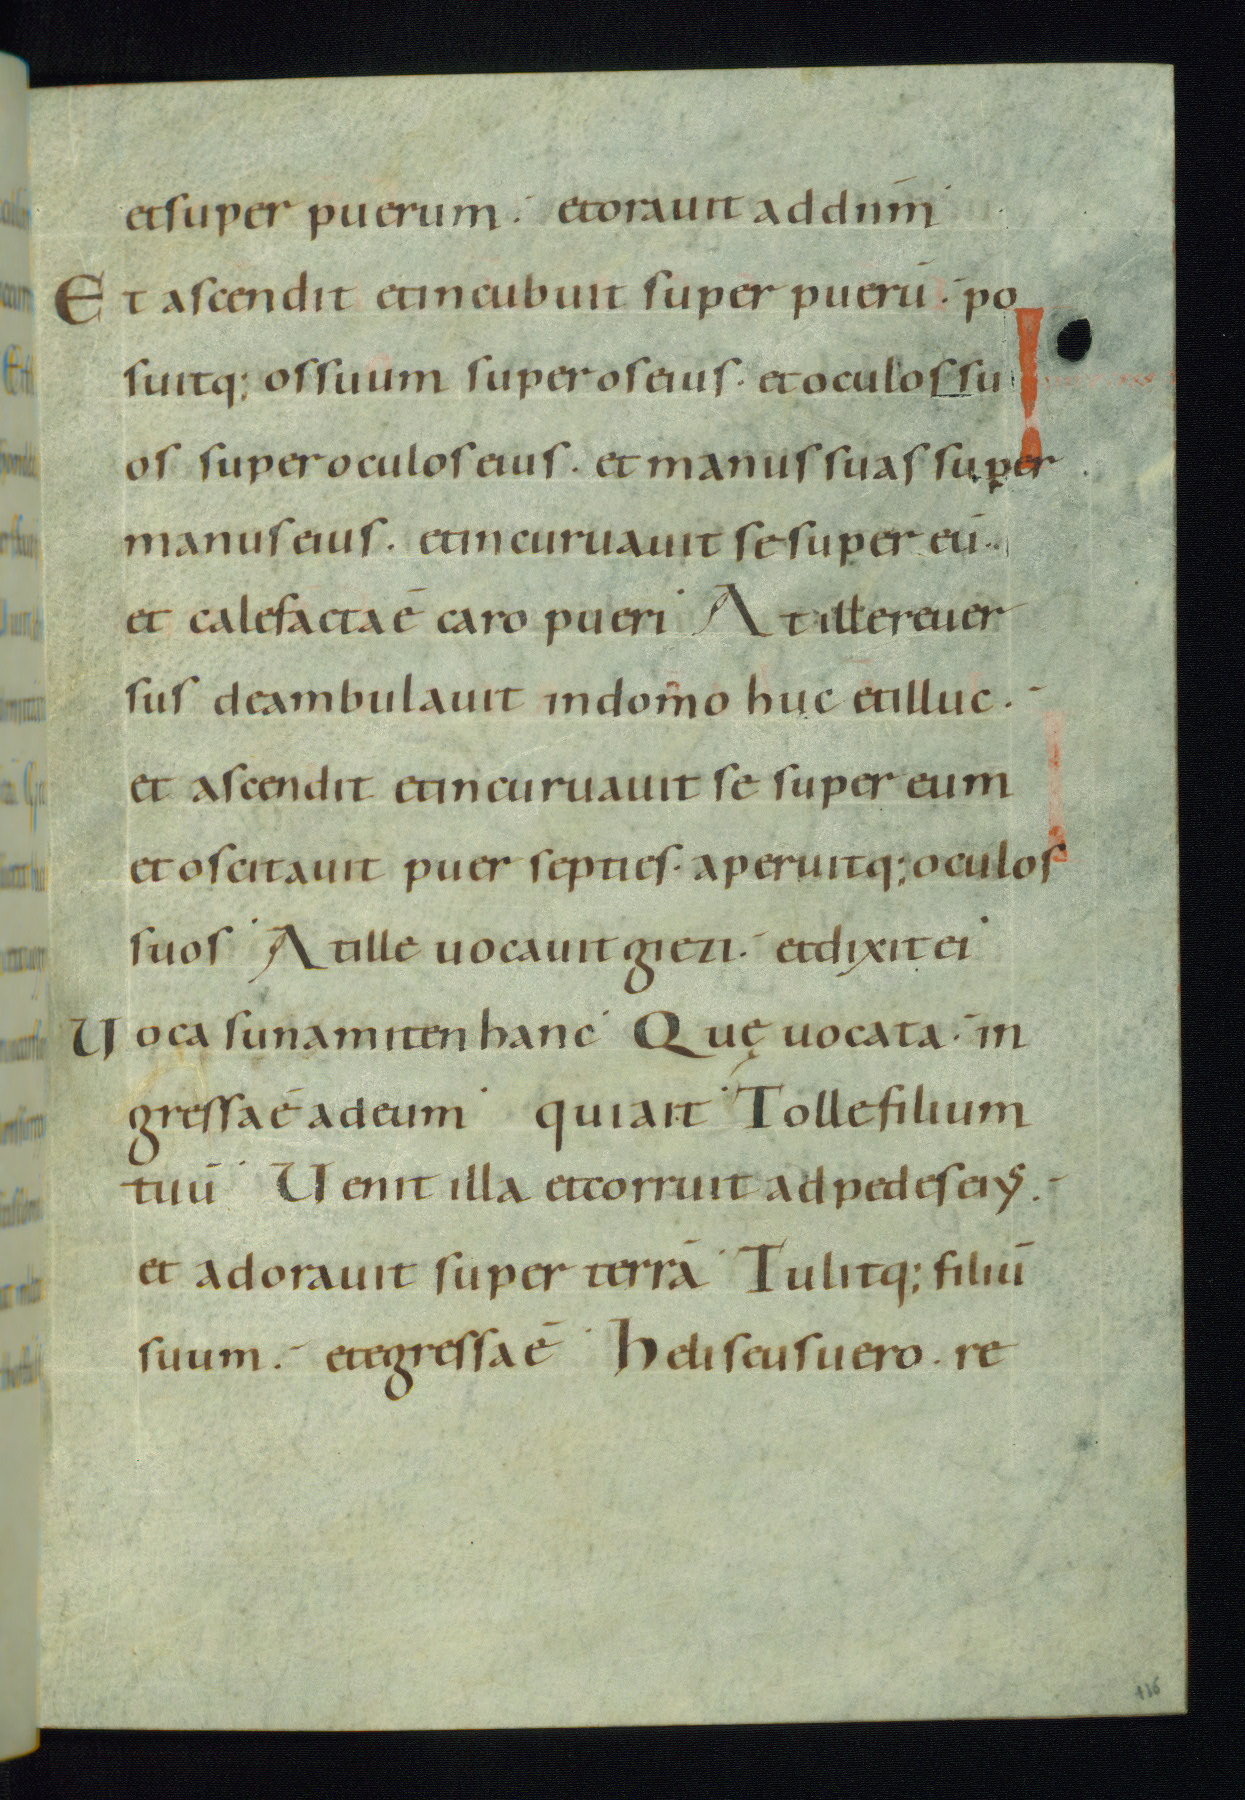 et super puerum. et orauit ad dnm̄
Et ascendit et incubuit super puerū. po
suitq; os suum super os eius. et oculos su
os super oculos eius. et manus suas super
manus eius. et incuruauit se super eū.
et calefacta ē caro pueri At ille reuer
sus deambulauit in domo huc et illuc.
et ascendit et incuruauit se super eum
et oscitauit puer septies. aperuitq; oculos
suos At ille uocauit giezi. et dixit ei
Uoca sunamiten hanc Quę uocata. in
gressa ē ad eum qui ait Tolle filium
tuū Uenit illa et corruit ad pedes eiꝰ.
et adorauit super terrā Tulitq; filiū
suum. et egressa ē heliseus uero. re
116